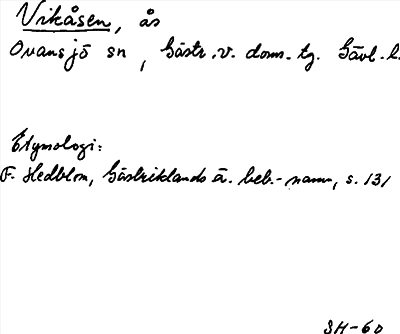 Vikåsen, ås
Ovansjö sn, Gästr. v. doms. tg. Gävl. l.
Etymologi:
F. Hedblom, Gästriklands ä. beb.-namn, s. 131
SH-60